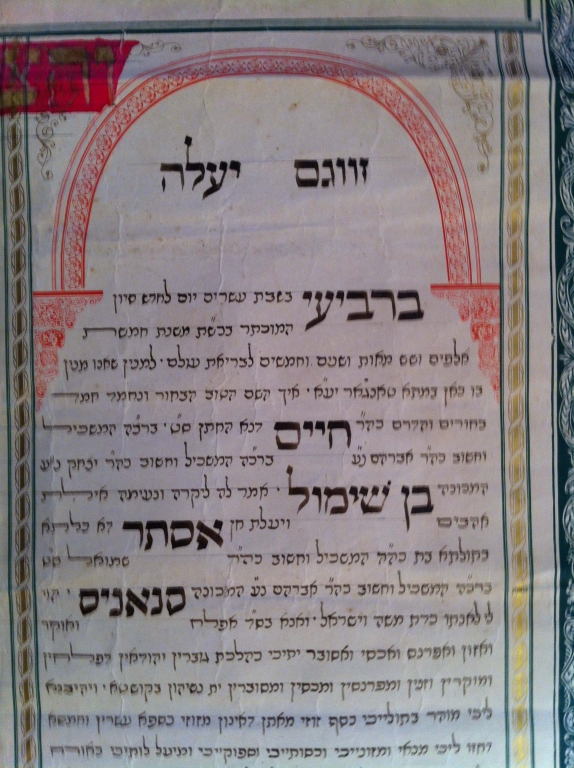 זווגם יעלה
ברביעי בשבת עשרים יום לחדש סיון
המובחר בכ״שת משנת חמשת
אלפים ושש מאות ושנים וחמשים לבריאת עולם למנין שאנו מנין
בו כאן במתא טאנג׳אר יע״א איך השם הטוב הבחור ונחמד חמד
בחורים והדרם כה״ר חיים דנא החתן ס״ט בר׳ כה׳ המשכיל
וחשוב כה״ר אברהם נ״ע בר׳ כה׳ המשכיל וחשוב כה״ר יצחק נ״ע
המכונה בן שימול אמר לה ליקרה ונעימה אילת
אהבים ויעלת חן אסתר דא כלתא
בתולתא בת כה״ה המשכיל וחשוב כה״ר שמואל ס״ט
בר׳ כה׳ המשכיל וחשוב כה״ר אברהם נ״ע המכונה סנאניס הוי
לי לאנתו כדת משה וישראל ואנא בס״ד אפלח ואוקיר
ואזון ואפרנס ואכסי ואסובר יתיכי כהלכת גוברין יהודאין דפלחין
ומוקרין וזנין ומפרנסין ומכסין ומסוברין ית נשיהון בקושטא ויהיבנא
ליכי מוהר בתולייכי כסף זוזי מאתן דאינון מזוזי כספא עשרין וחמשא
דחזו ליכי מנאי ומזונייכי וכסותייכי וספוקייכי ומיעל לותיכי כאורח